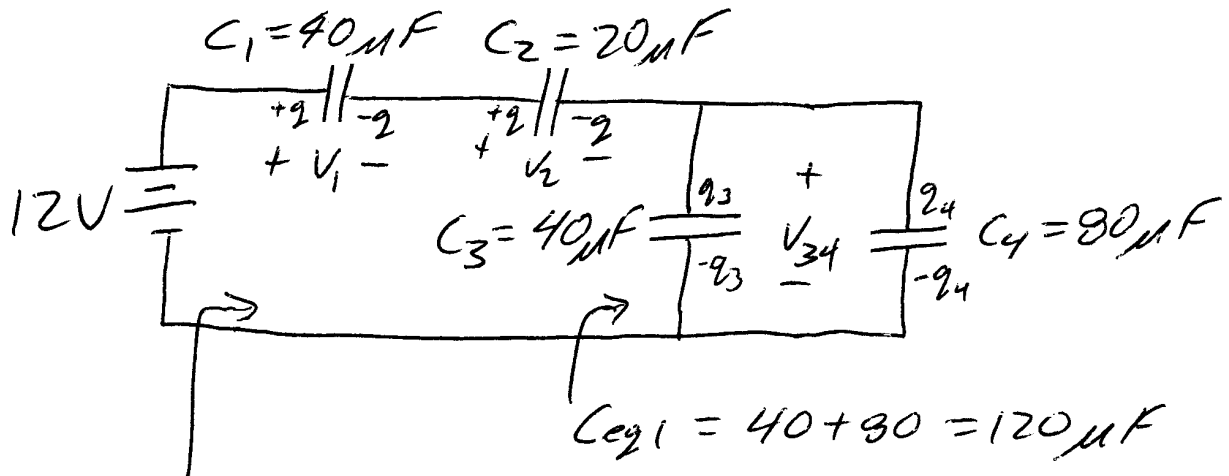 C₁ = 40 μF C₂ = 20 μF
+q -q +q -q
+ V₁ - + V₂ -
12V
C₃ = 40 μF q₃ -q₃ + V₃₄ - q₄ -q₄ C₄ = 80 μF
Ceq1 = 40 + 80 = 120 μF